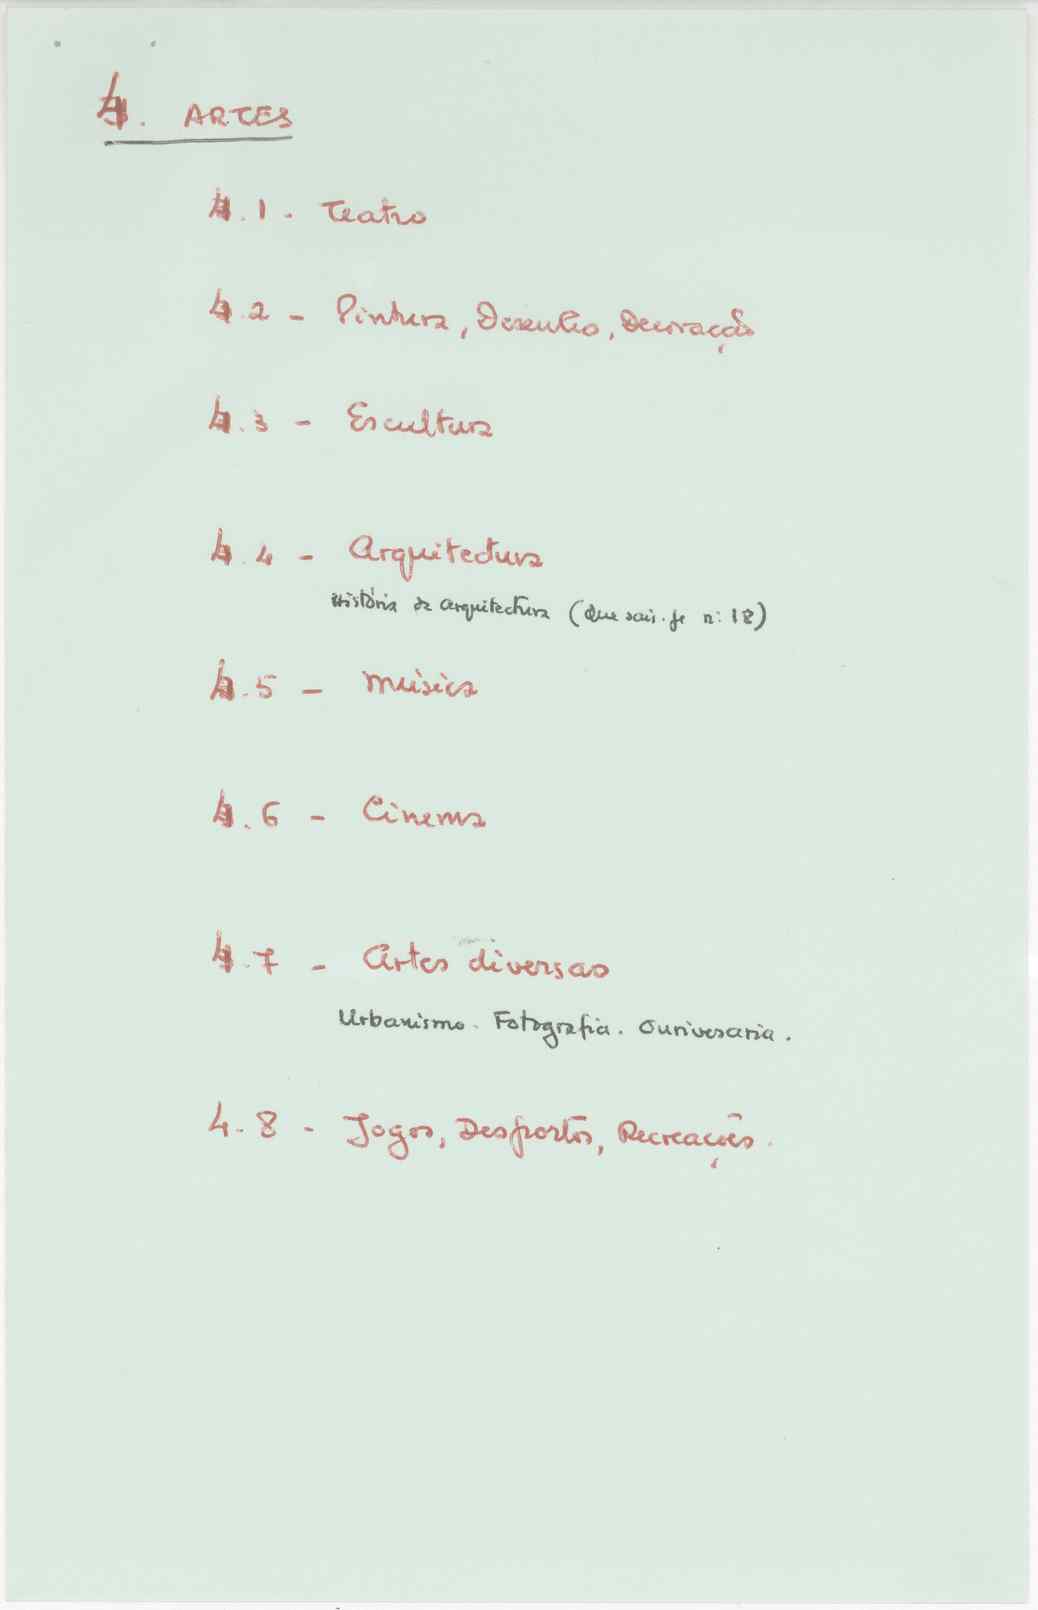 4. ARTES
4.1 - Teatro
4.2 - Pintura, Desenho, Decoração
4.3 - Escultura
4.4 - Arquitectura
História da Arquitectura (Que sais-je nº 18)
4.5 - Música
4.6 - Cinema
4.7 - Artes diversas
Urbanismo. Fotografia. Ourivesaria.
4.8 - Jogos, Desportos, Recreações.